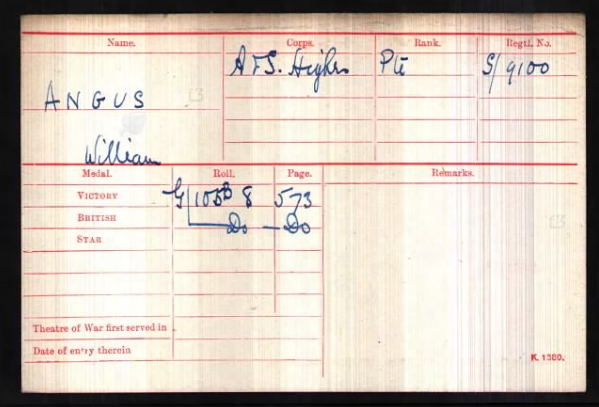 Name. Corps. Rank. Regtl. No.
A & S. Highrs Pte S/9100
ANGUS
William
Medal. Roll. Page. Remarks.
VICTORY G/105 B 8 573
BRITISH Do — Do
STAR
Theatre of War first served in
Date of entry therein
K. 1380.